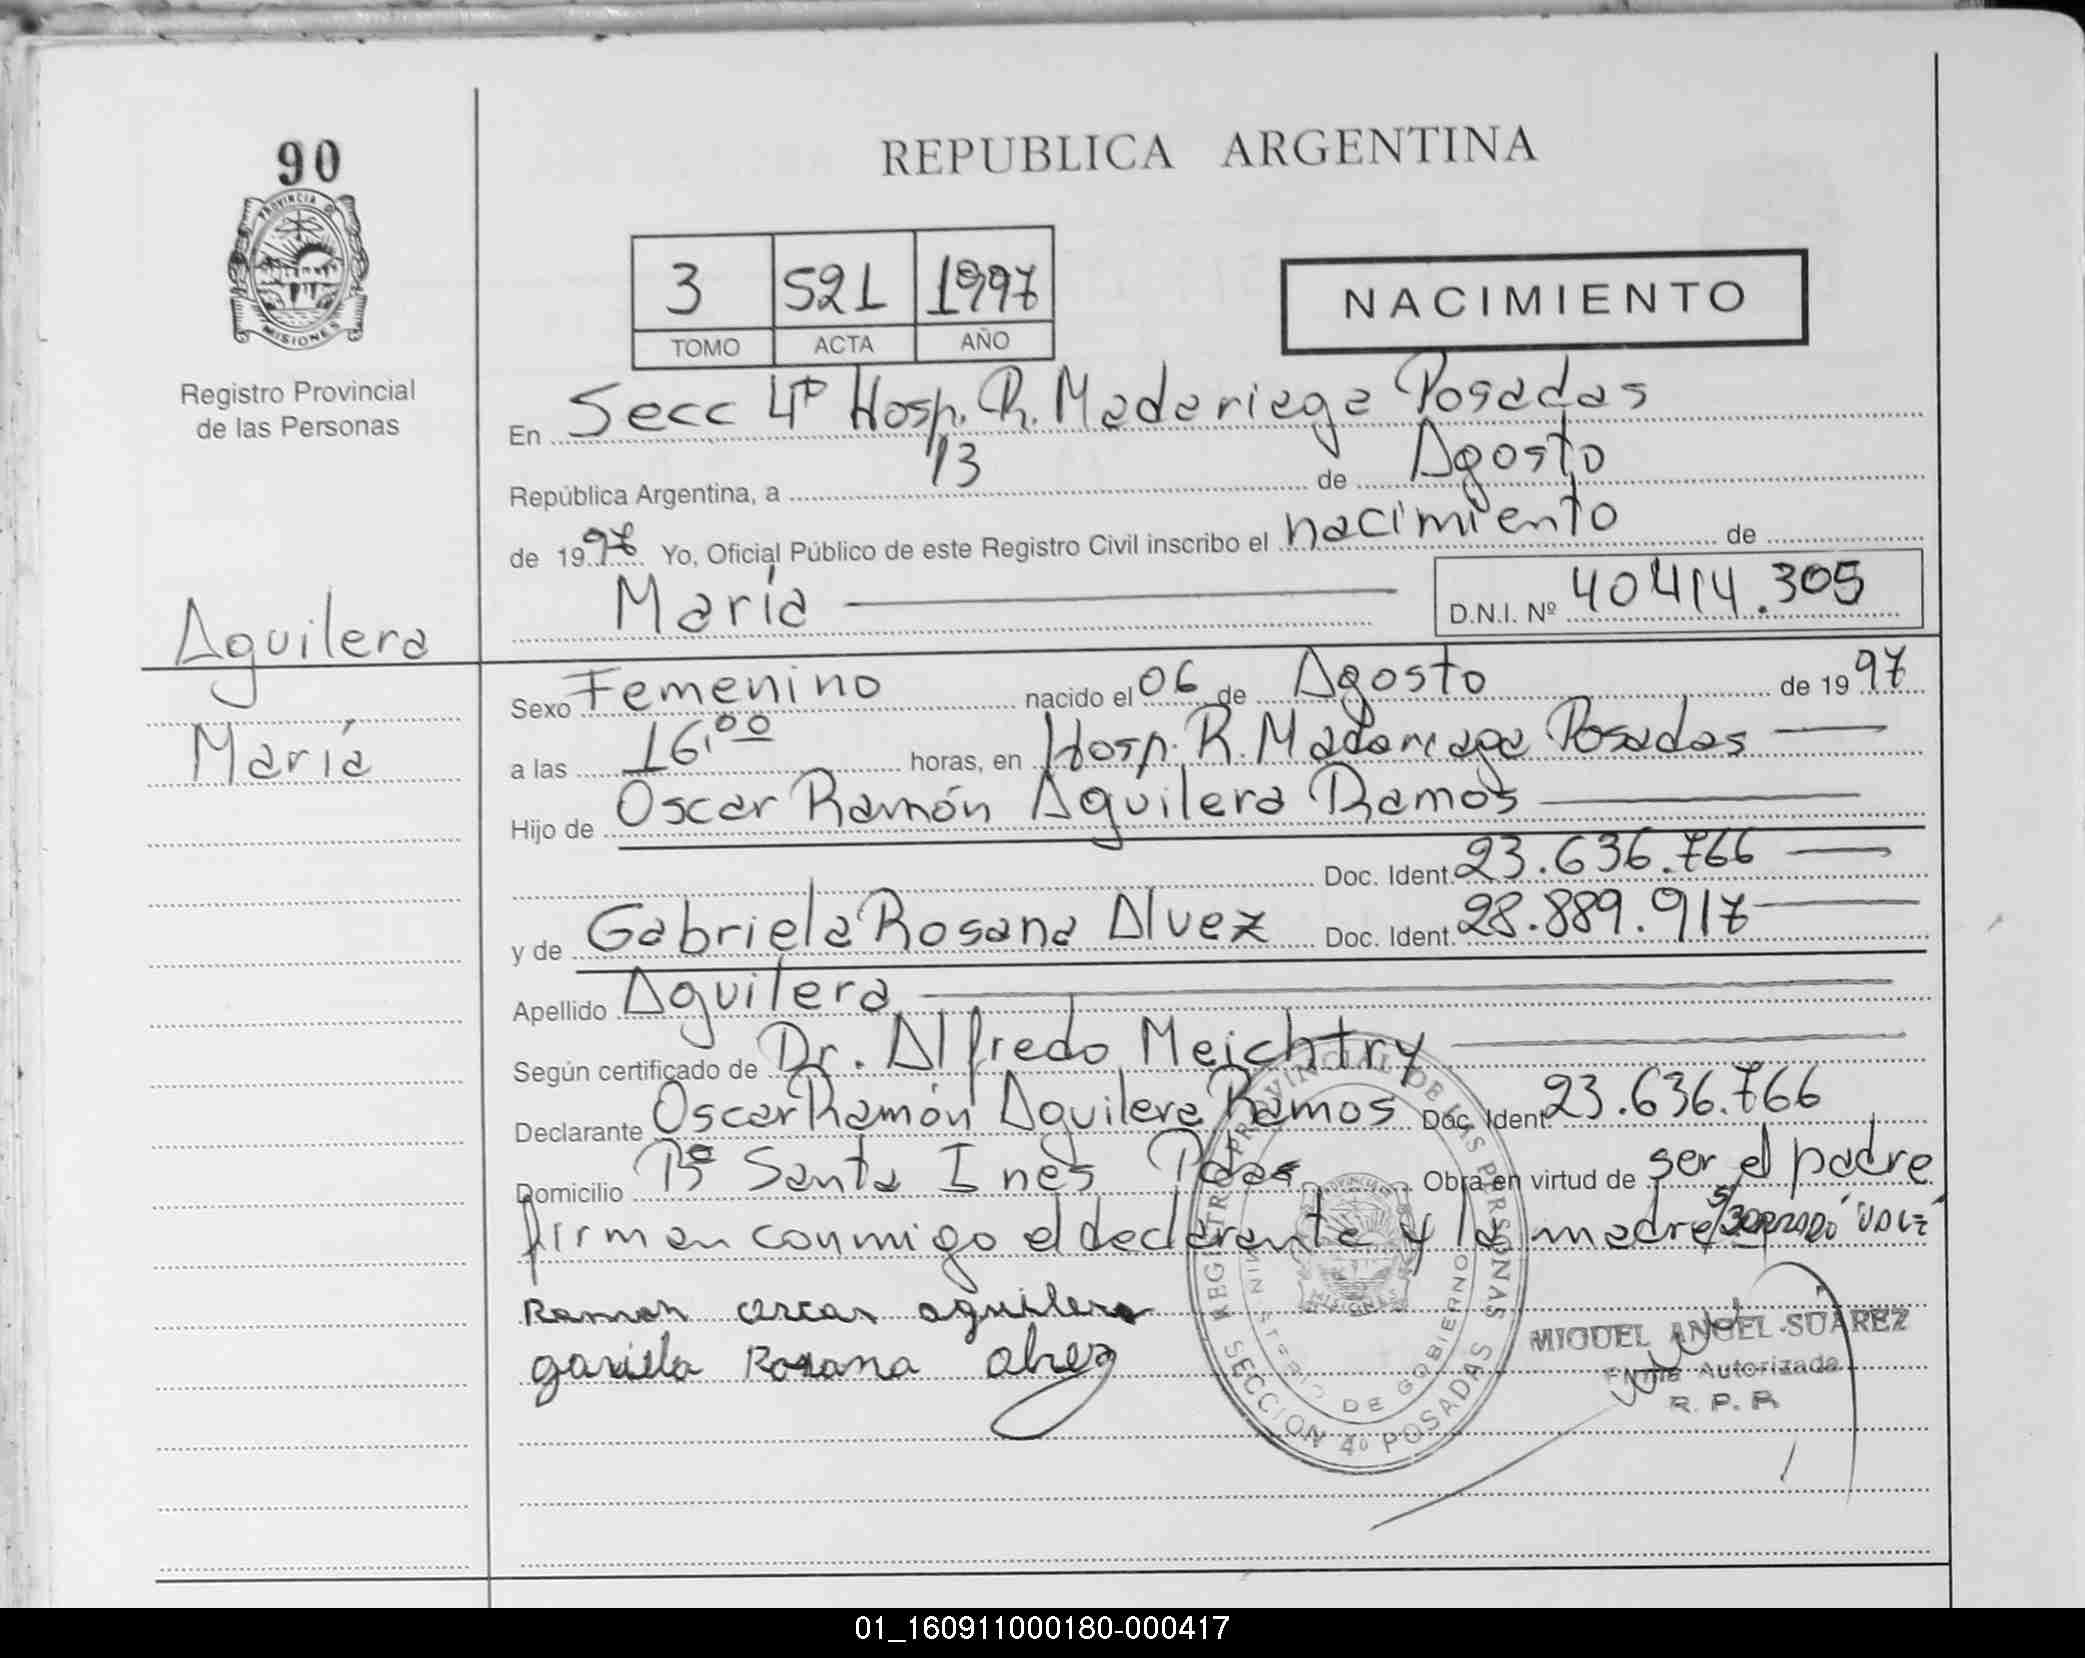 90
PROVINCIA D
MISIONES
Registro Provincial
de las Personas
Aguilera
María
REPUBLICA ARGENTINA
3 521 1997
TOMO ACTA AÑO
NACIMIENTO
En Secc 4ª Hosp. R. Madariaga Posadas
República Argentina, a 13 de Agosto
de 1997 Yo, Oficial Público de este Registro Civil inscribo el nacimiento de
María D.N.I. Nº 40414.305
Sexo Femenino nacido el 06 de Agosto de 1997
a las 16,00 horas, en Hosp. R. Madariaga Posadas
Hijo de Oscar Ramón Aguilera Ramos
Doc. Ident. 23.636.766
y de Gabriela Rosana Alvez Doc. Ident. 28.889.917
Apellido Aguilera
Según certificado de Dr. Alfredo Meichtry
Declarante Oscar Ramón Aguilera Ramos Doc. Ident. 23.636.766
Domicilio Bº Santa Inés Pdas Obra en virtud de ser el padre
firman conmigo el declarante y la madre
Ramon oscar aguilera
gariela Rosana alvez
REGISTRO PROVINCIAL DE LAS PERSONAS
MINISTERIO DE GOBIERNO
SECCION 4º POSADAS
MIGUEL ANGEL SUAREZ
Firma Autorizada
R. P. P.
01_160911000180-000417